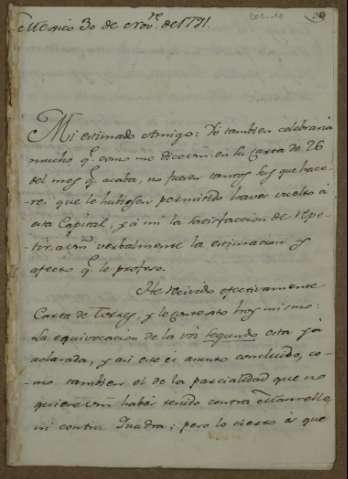 Mexico 30 de Nov.re de 1791.
Mi estimado Amigo: Yo tambien celebraria
mucho q.e como me dice vm. en la carta de 26
del mes q.e acaba, no fuesen tantos los que hace-
res que le hubiesen permitido haver vuelto á
esta Capital, y á mi la satisfaccion de repe-
tir á vm. verbalmente la estimacion y
afecto q.e le profeso.
He recivido efectivamente
Carta de Torres, y le contesto hoy mismo:
La equivocacion de la voz segundo está yá
aclarada, y asi este es asunto concluido, co-
mo tambien el de la parcialidad que no
quiere vm. haber tenido contra
ni contra Quadra; pero lo cierto es que